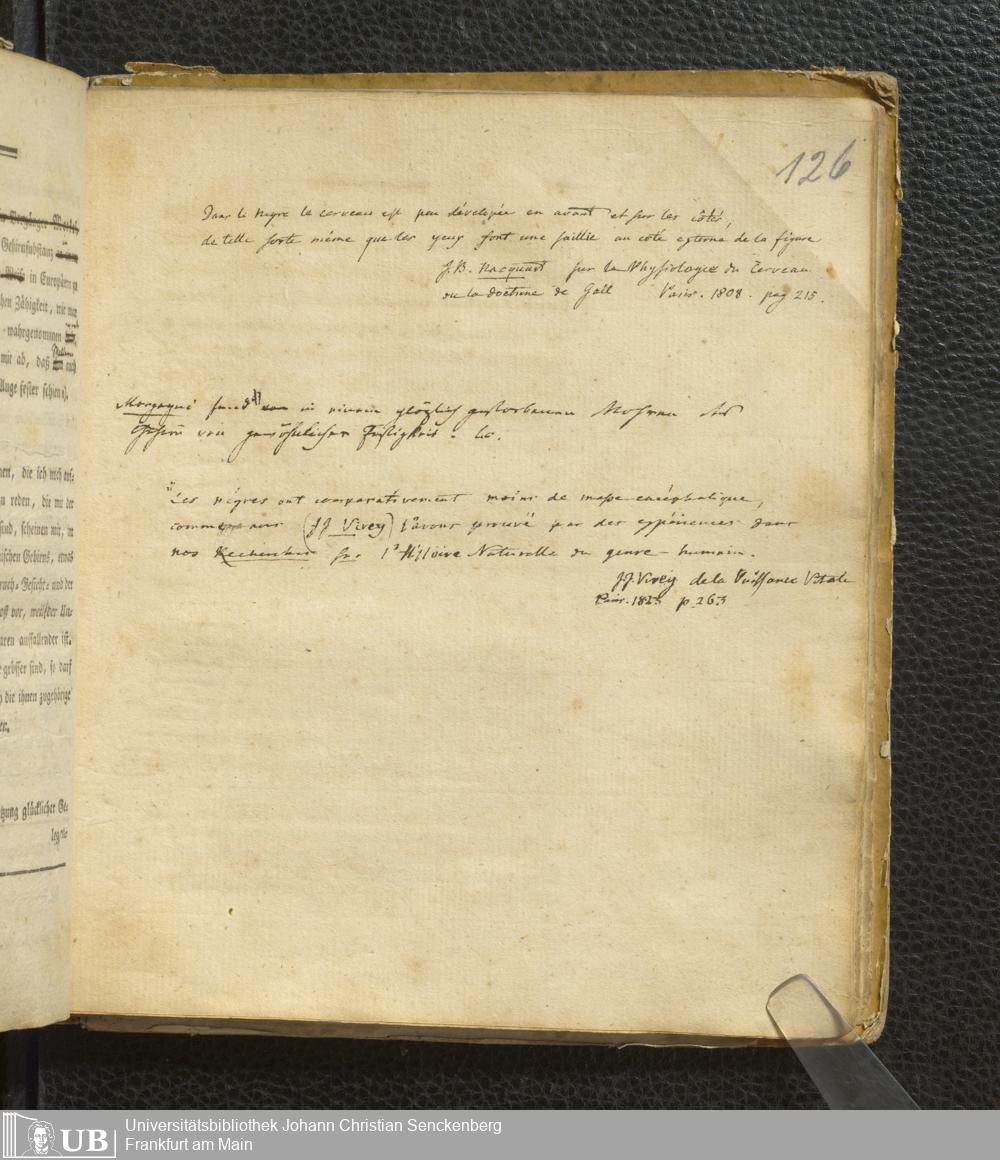 126
Dans le Negre le cerveau est peu développée en avant et sur les côtés,
de telle sorte même que les yeux font une saillie au coté externe de la figure
J. B. Nacquart sur la Physiologie du Cerveau
ou la doctrine de Gall Paris. 1808. pag 215.
Morgagni fand in einem plözlich gestorbenen Mohren das
Gehirn von gewöhnlicher Festigkeit.
"Les nègres ont comparativement moins de masse encéphalique,
comme nous (JJ Virey) l'avons prouvé par des expériences dans
nos Recherches sur l'Histoire Naturelle du genre humain.
JJ. Virey de la Puissance Vitale
Paris. 1823 p. 263
Gehirnsubstanz
in Europäern zu
hen Zähigkeit, wie man
wahrgenommen
mir ab, daß auch
Auge fester schien
nen, die ich noch auf-
zu reden, die mit der
sind, scheinen mir, im
nischen Gehirns, etwas
ruch- Gesicht- und der
oft vor, weil der Un-
aren auffallender ist.
e grösser sind, so darf
h die ihnen zugehörige
zung glücklicher Ge-
legen
UB
Universitätsbibliothek Johann Christian Senckenberg
Frankfurt am Main